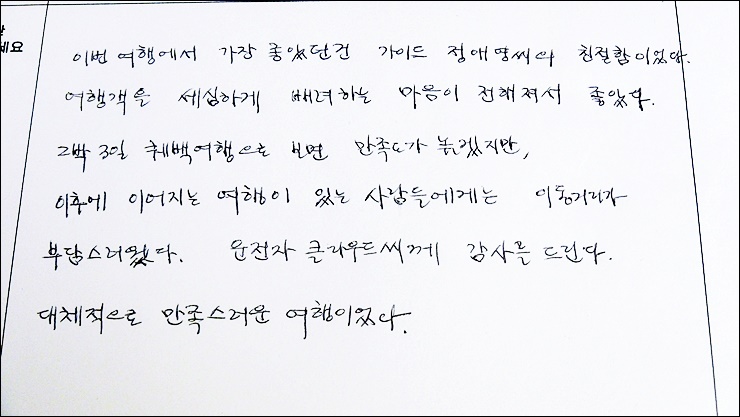 세요
이번 여행에서 가장 좋았던건 가이드 정애영씨의 친절함이었다.
여행객을 세심하게 배려하는 마음이 전해져서 좋았다.
2박 3일 퀘백여행으로 보면 만족도가 높겠지만,
이후에 이어지는 여행이 있는 사람들에게는 이동거리가
부담스러웠다. 운전자 클라우드씨께 감사를 드린다.
대체적으로 만족스러운 여행이었다.